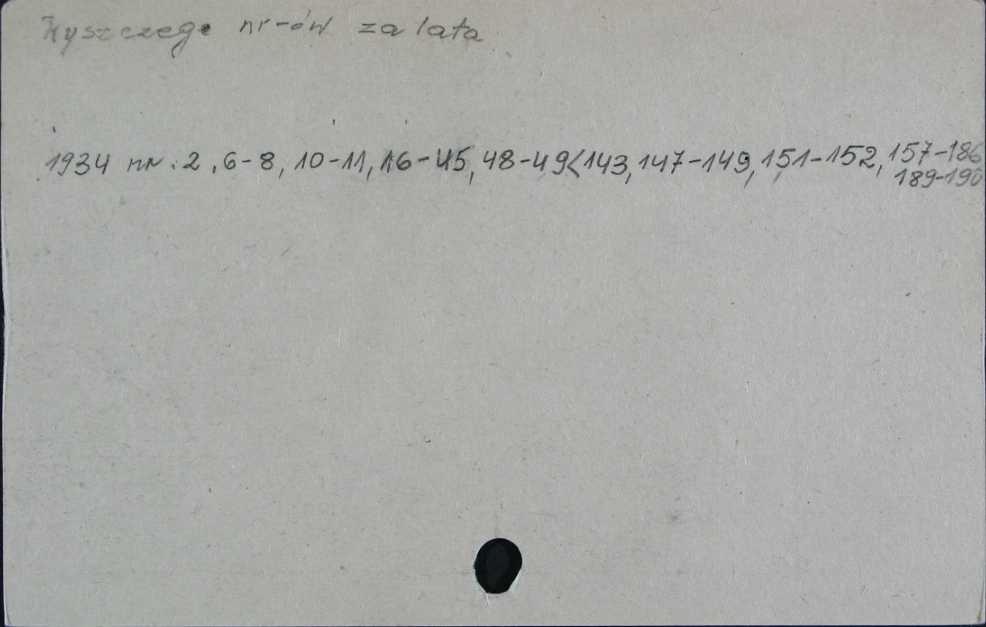 Wyszczeg. nr-ów za lata
1934 nr. 2, 6-8, 10-11, 16-45, 48-49<143, 147-149, 151-152, 157-186
189-190